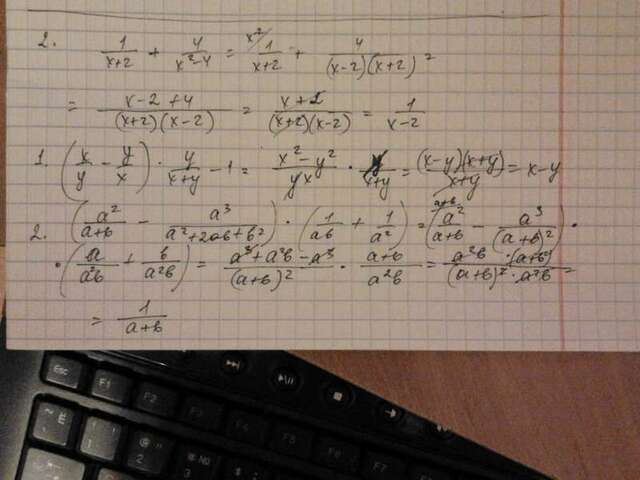 2. 1/(x+2) + 4/(x²-4) = 1/(x+2) + 4/((x-2)(x+2)) =
= (x-2+4)/((x+2)(x-2)) = (x+2)/((x+2)(x-2)) = 1/(x-2)
1. (x/y - y/x) · y/(x+y) - 1 = (x²-y²)/(yx) · y/(x+y) = ((x-y)(x+y))/(x+y) = x-y
2. (a²/(a+b) - a³/(a²+2ab+b²)) · (1/(ab) + 1/a²) = (a²/(a+b) - a³/(a+b)²) ·
· (a/(a²b) + b/(a²b)) = (a³+a²b-a³)/(a+b)² · (a+b)/(a²b) = (a²b·(a+b))/((a+b)²·a²b) =
= 1/(a+b)
Esc F1 F2 F3
1 2 @